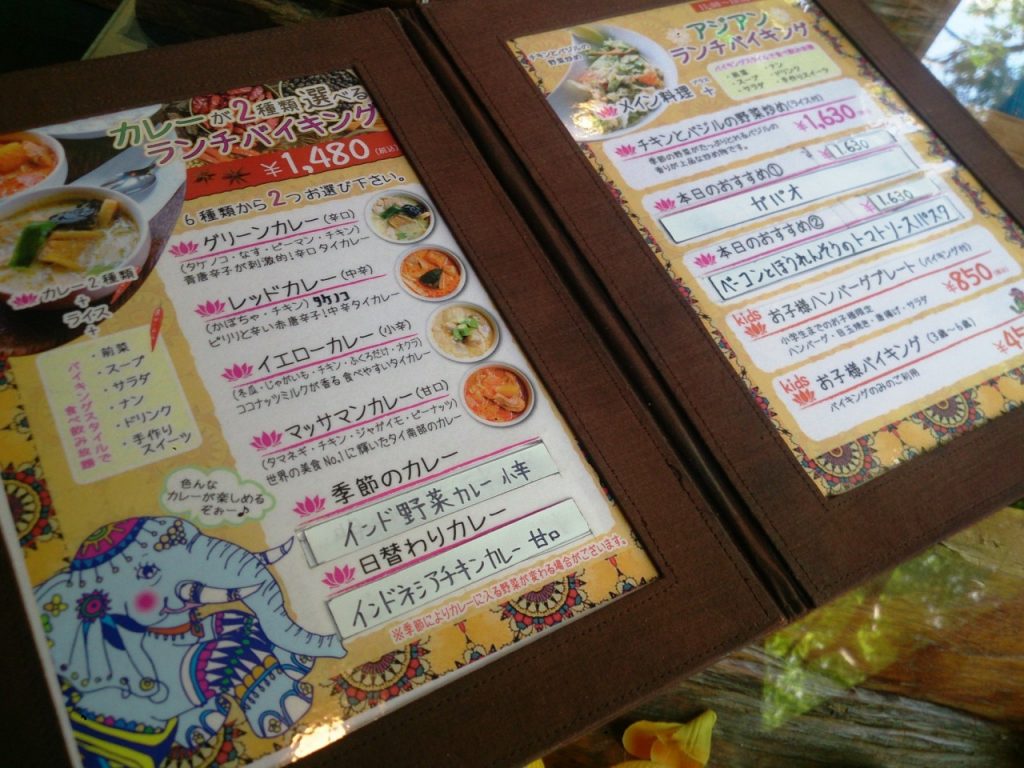 カレーが2種類選べる
ランチバイキング
¥1,480(税込)
6種類から2つお選び下さい。
グリーンカレー(辛口)
(タケノコ・なす・ピーマン・チキン)
青唐辛子が刺激的!辛口タイカレー
レッドカレー(中辛)
(かぼちゃ・チキン)タケノコ
ピリリと辛い赤唐辛子!中辛タイカレー
イエローカレー(小辛)
(冬瓜・じゃがいも・チキン・ふくろだけ・オクラ)
ココナッツミルクが香る 食べやすいタイカレー
マッサマンカレー(甘口)
(タマネギ・チキン・ジャガイモ・ピーナッツ)
世界の美食No.1に輝いたタイ南部のカレー
季節のカレー
インド野菜カレー 小辛
日替わりカレー
インドネシアチキンカレー 甘口
※季節によりカレーに入る野菜が変わる場合がございます。
カレー2種類
+
ライス
+
・前菜
・スープ
・サラダ
・ナン
・ドリンク
・手作り
スイーツ
バイキングスタイルで
食べ飲み放題
色んな
カレーが楽しめる
ぞぉー♪
アジアン
ランチバイキング
チキンとバジルの
野菜炒め
メイン料理
プラス
+
バイキングスタイルで食べ飲み放題
・前菜
・スープ
・サラダ
・ナン
・ドリンク
・手作りスイーツ
チキンとバジルの野菜炒め(ライス付)
季節の野菜がたっぷりとれるバジルの
香りが上品な炒め物です。
¥1,630
本日のおすすめ①
¥1,630
ガパオ
本日のおすすめ②
¥1,630
ベーコンとほうれんそうのトマトソースパスタ
kids お子様ハンバーグプレート(バイキング付)
小学生までのお子様限定
ハンバーグ・目玉焼き・唐揚げ・サラダ
¥850(税込)
kids お子様バイキング(3歳〜6歳)
バイキングのみのご利用